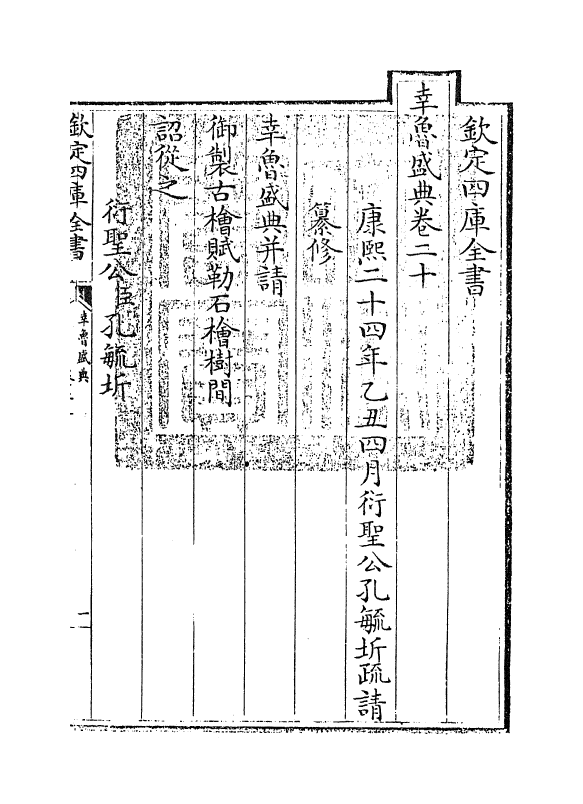 欽定四庫全書
幸魯盛典卷二十
康熙二十四年乙丑四月衍聖公孔毓圻疏請
纂修
幸魯盛典并請
御製古檜賦勒石檜樹間
詔從之
衍聖公臣孔毓圻
欽定四庫全書
幸魯盛典